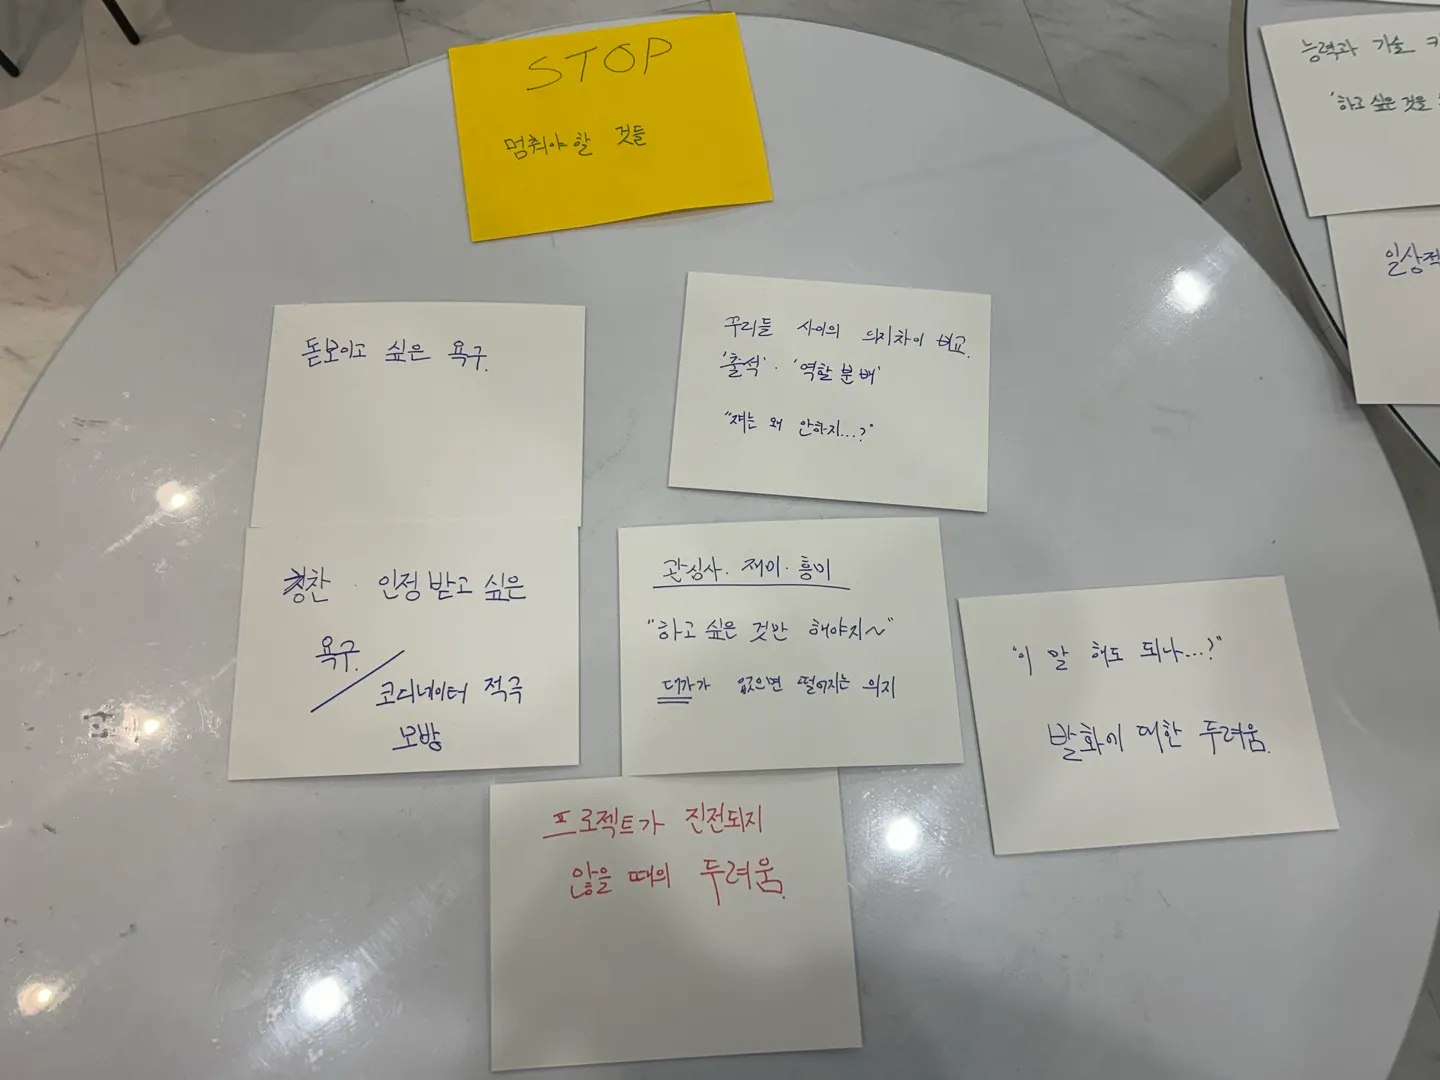 STOP
멈춰야할 것들
돋보이고 싶은 욕구.
꾸리들 사이의 의지차이 비교.
'출석'·'역할분배'
"쟤는 왜 안하지...?"
칭찬·인정받고 싶은
욕구.
코디네이터 적극
모방
관심사·재미·흥미
"하고 싶은 것만 해야지~"
대가가 없으면 떨어지는 의지
"이 말 해도 되나...?"
발화에 대한 두려움.
프로젝트가 진전되지
않을 때의 두려움.
능력과 기술
'하고 싶은 것을
일상적